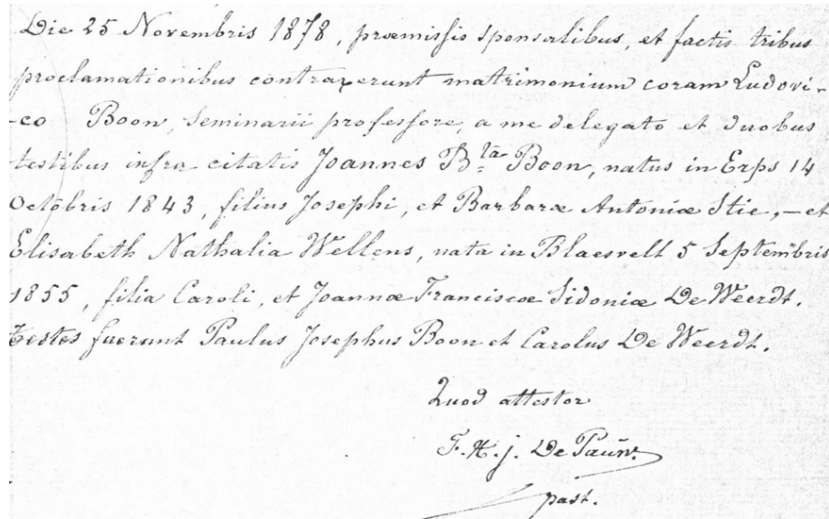 Die 25 Novembris 1878, præmissis sponsalibus, et factis tribus
proclamationibus contraxerunt matrimonium coram Ludovi-
-co Boon, Seminarii professore, a me delegato et duobus
testibus infra citatis Joannes B.ta Boon, natus in Erps 14
Octobris 1843, filius Josephi, et Barbaræ Antoniæ Stie, – et
Elisabeth Nathalia Wellens, nata in Blaesvelt 5 Septembris
1855, filia Caroli, et Joannæ Franciscæ Sidoniæ De Weerdt.
Testes fuerunt Paulus Josephus Boon et Carolus De Weerdt.
Quod attestor
F. H. j. De Pauw.
past.